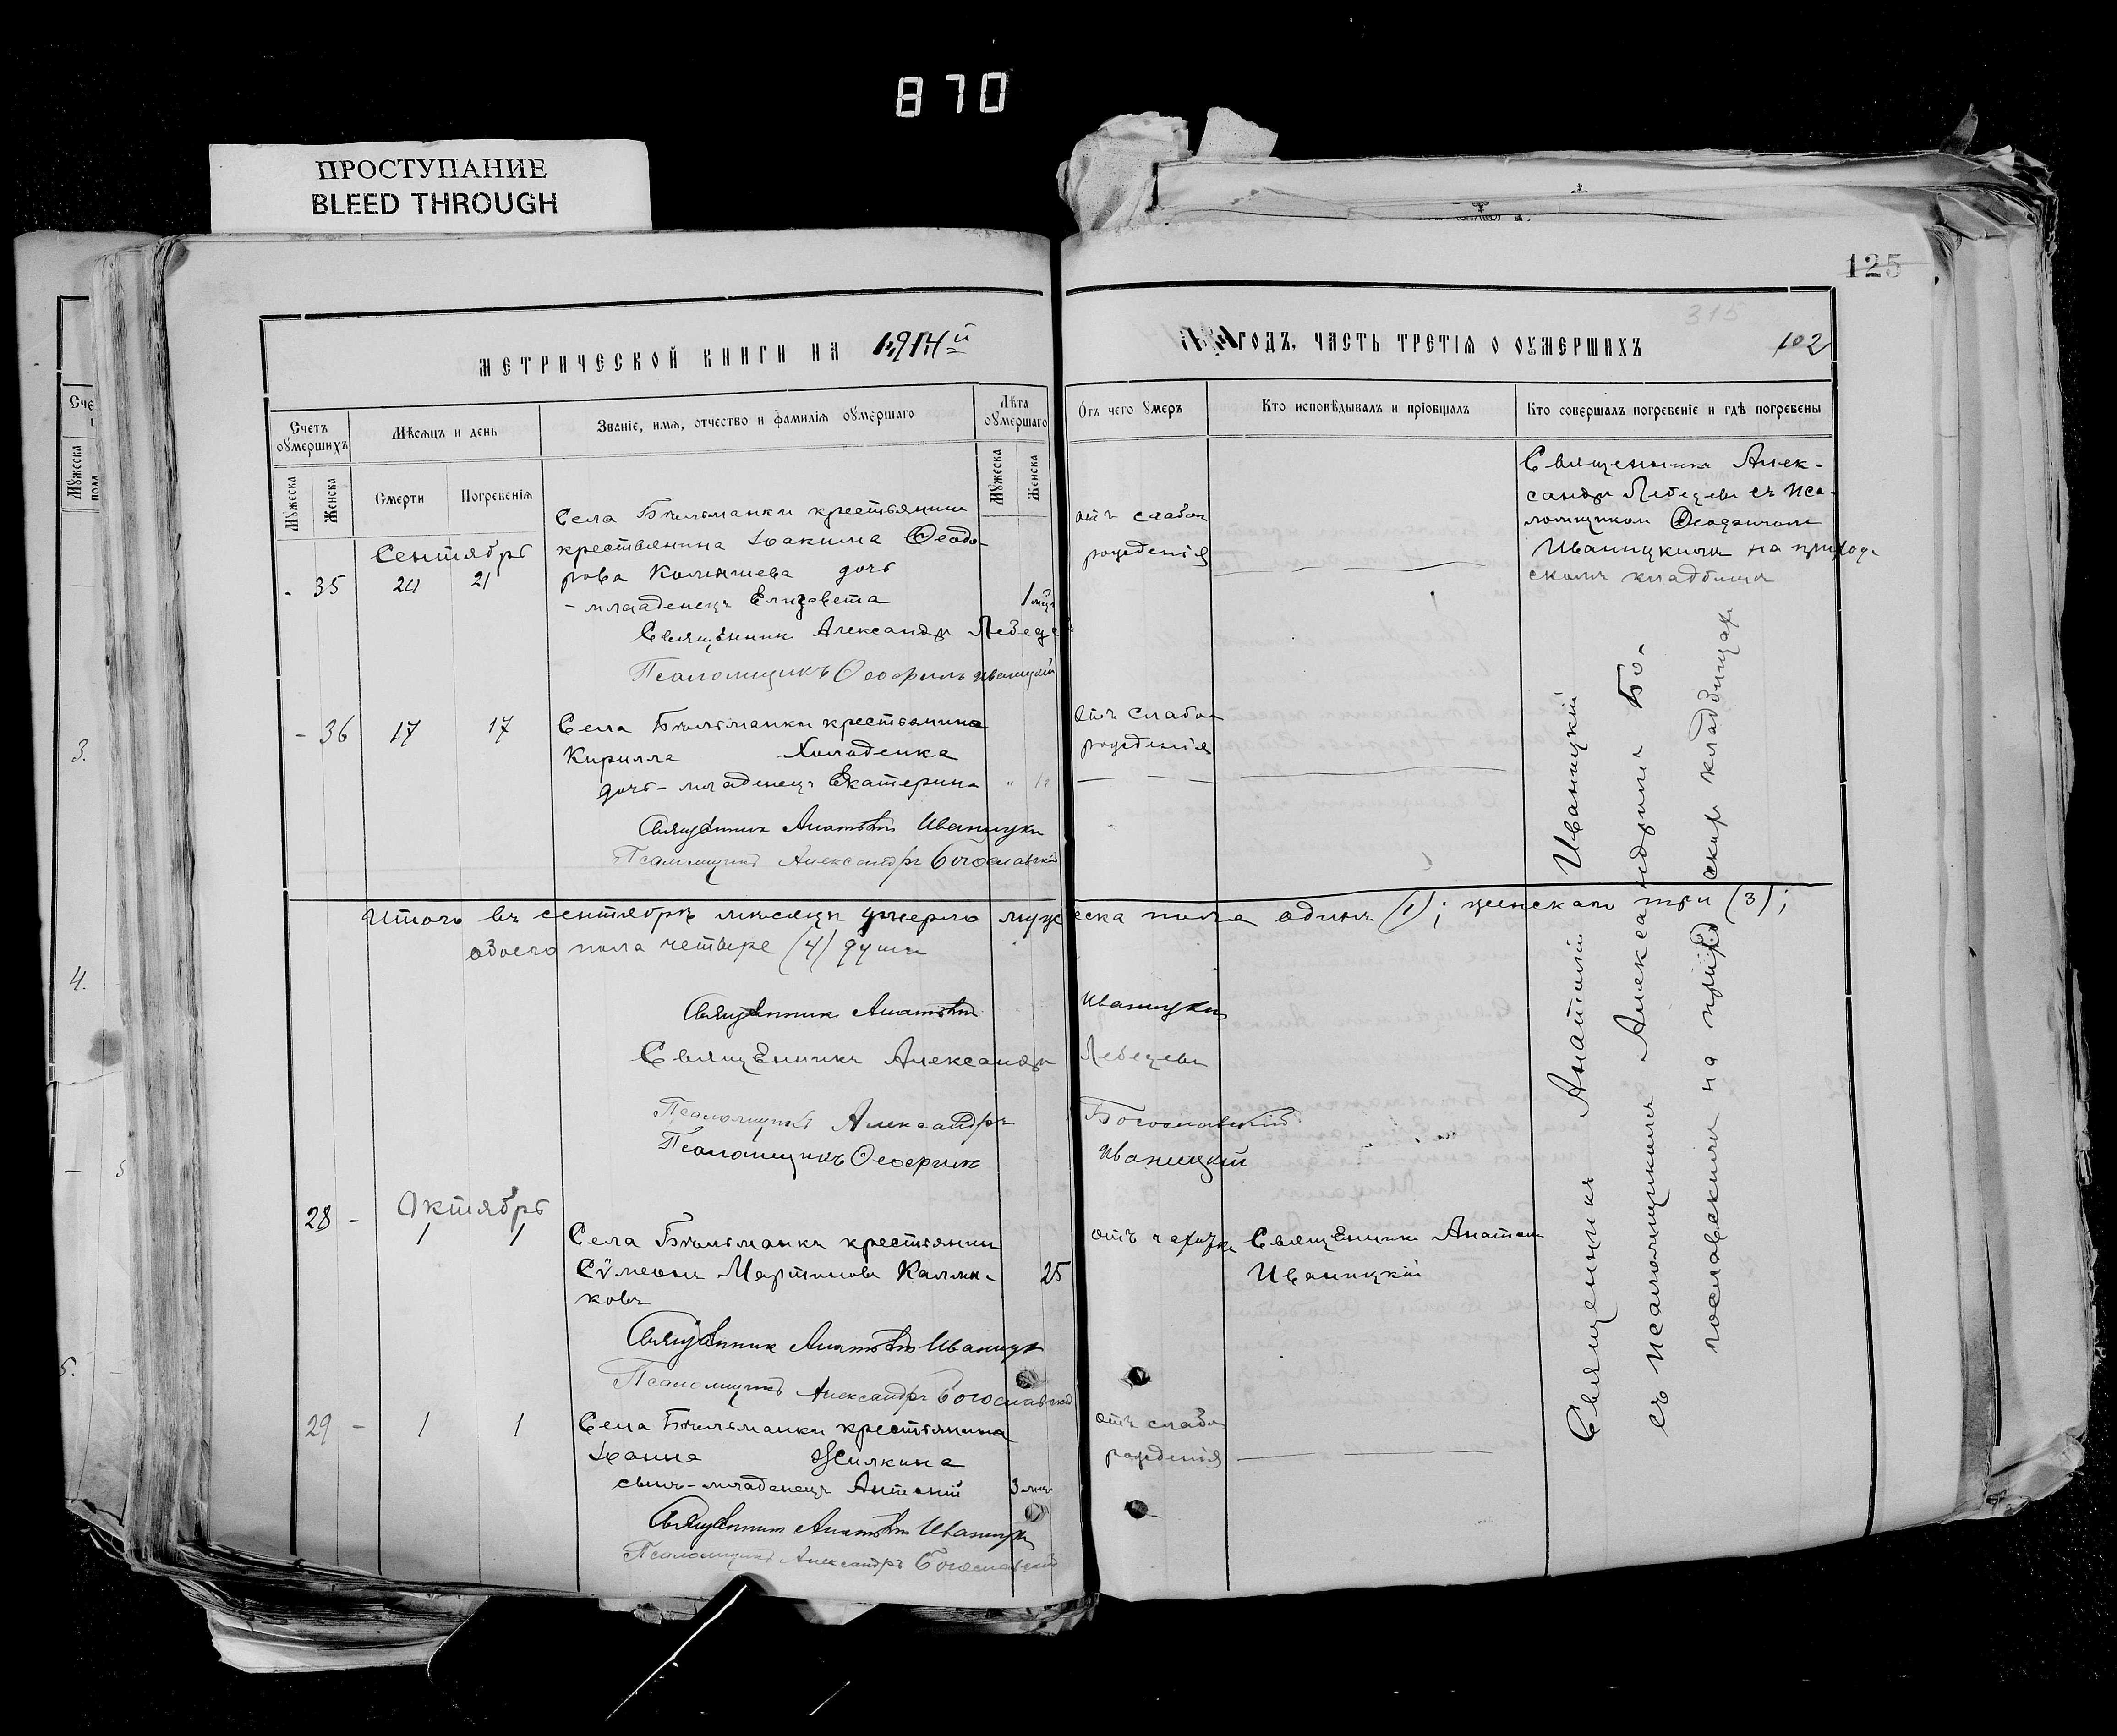 870
ПРОСТУПАНИЕ
BLEED THROUGH
125
315
МЕТРИЧЕСКОЙ КНИГИ НА 1914й
ГОДЪ, ЧАСТЬ ТРЕТІЯ О ОУМЕРШИХЪ
102
Счетъ оумершихъ
Мѣсяцъ и день
Званіе, имя, отчество и фамилія оумершаго
Лѣта оумершаго
Отъ чего умеръ
Кто исповѣдывалъ и пріобщалъ
Кто совершалъ погребеніе и гдѣ погребены
Мужеска
Женска
Смерти
Погребенія
Мужеска
Женска
Сентябрь
- 35
20 21
Села Бѣльманки крестьянина
крестьянина Іоакима Ѳеодо-
рова дочь
- младенецъ Елизавета
1 мѣс
Священникъ Александръ Лебедев
Псаломщикъ Ѳеофилъ Иваницкій
отъ слабо
рожденія
Священникъ Алек-
сандръ Лебедевъ съ пса-
ломщикомъ
Иваницкимъ на приход-
скомъ кладбищѣ
- 36
17 17
Села Бѣльманки крестьянина
Кирилла Холоденка
дочь - младенецъ Екатерина
Священникъ Анатолій Иваницкій
Псаломщикъ Александръ Богославскій
Отъ слабо
рожденія
Итого въ сентябрѣ мѣсяцѣ умерло мужеска пола одинъ (1); женскаго три (3);
обоего пола четыре (4) души
Священникъ Анатолій Иваницкій
Священникъ Александръ Лебедевъ
Псаломщикъ Александръ Богославскій
Псаломщикъ Ѳеофилъ Иваницкій
Октябрь
28 -
1 1
Села Бѣльманки крестьянинъ
Сѵмеонъ Мартиновъ Калми-
ковъ
25
Священникъ Анатолій Иваницкій
Псаломщикъ Александръ Богославскій
отъ чахотки
Священникъ Анатолій
Иваницкій
29 -
1 1
Села Бѣльманки крестьянина
Іоанна Жилкина
сынъ - младенецъ Антоній
3 мѣс
Священникъ Анатолій Иваницкій
Псаломщикъ Александръ Богославскій
отъ слабо
рожденія
Священникъ Анатолій Иваницкій
съ псаломщикомъ Александромъ Бо-
гославскимъ на приходскомъ кладбищѣ
3.
4.
5
5.